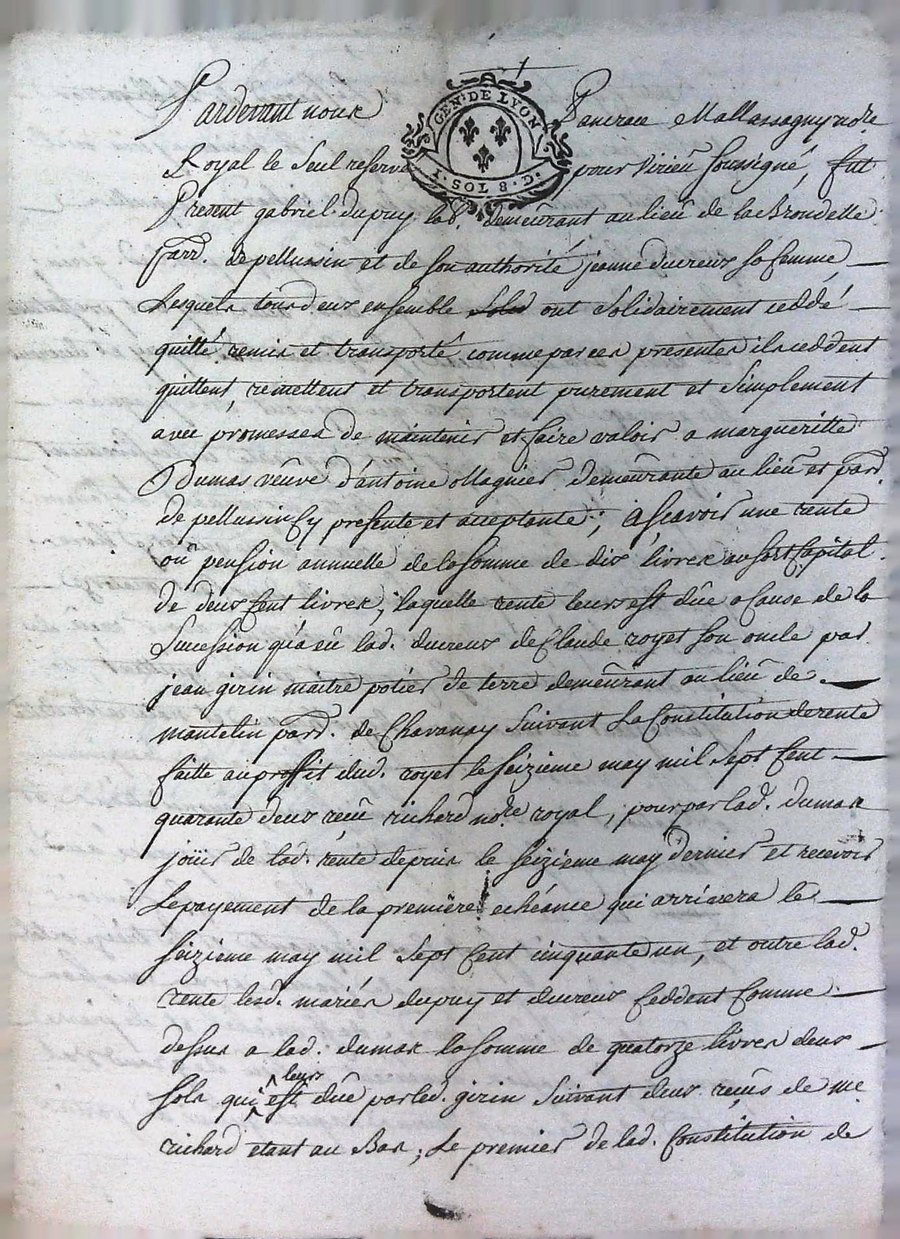 GEN. DE LYON
1. SOL 8. D.
Pardevant nous Pancrace Mallassagny no.re
Royal le seul reservé pour Virieu soussigné, fut
Present gabriel dupuy lab.r demeurant au lieu de la Brondelle
parr. de pellussin et de son authorité jeanne ducreux sa femme
Lesquels tous deux ensemble ont solidairement ceddé
quitté remis et transporté comme par ces presentes ils ceddent
quittent, remettent et transportent purement et simplement
avec promesses de maintenir et faire valoir a margueritte
Dumas veuve d'antoine Magnier demeurante au lieu et parr.
de pellussin Cy presente et acceptante; a scavoir une rente
ou pension annuelle de la somme de dix livres au sort Capital
de deux Cent livres, laquelle rente leurs est dûe a Cause de la
Succession qu'a eû lad. ducreux de Claude royet son oncle par
jean girin maitre potier de terre demeurant au lieu de
mantelin parr. de Chavanay suivant la Constitution de rente
faitte au proffit dud. royet le seizieme may mil sept Cent
quarante deux reçu richard no.re royal, pour par lad. dumas
joüir de lad. rente depuis le seizieme may dernier et recevoir
Le payement de la premiere echéance qui arrivera le
seizieme may mil sept Cent cinquante un, et outre lad.
rente lesd. mariés dupuy et ducreux Ceddent Comme
dessus a lad. dumas la somme de quatorze livres deux
sols qui leurs est dûe par led. girin suivant deux reçus de me
richard etant au Bas, Le premier de lad. Constitution de